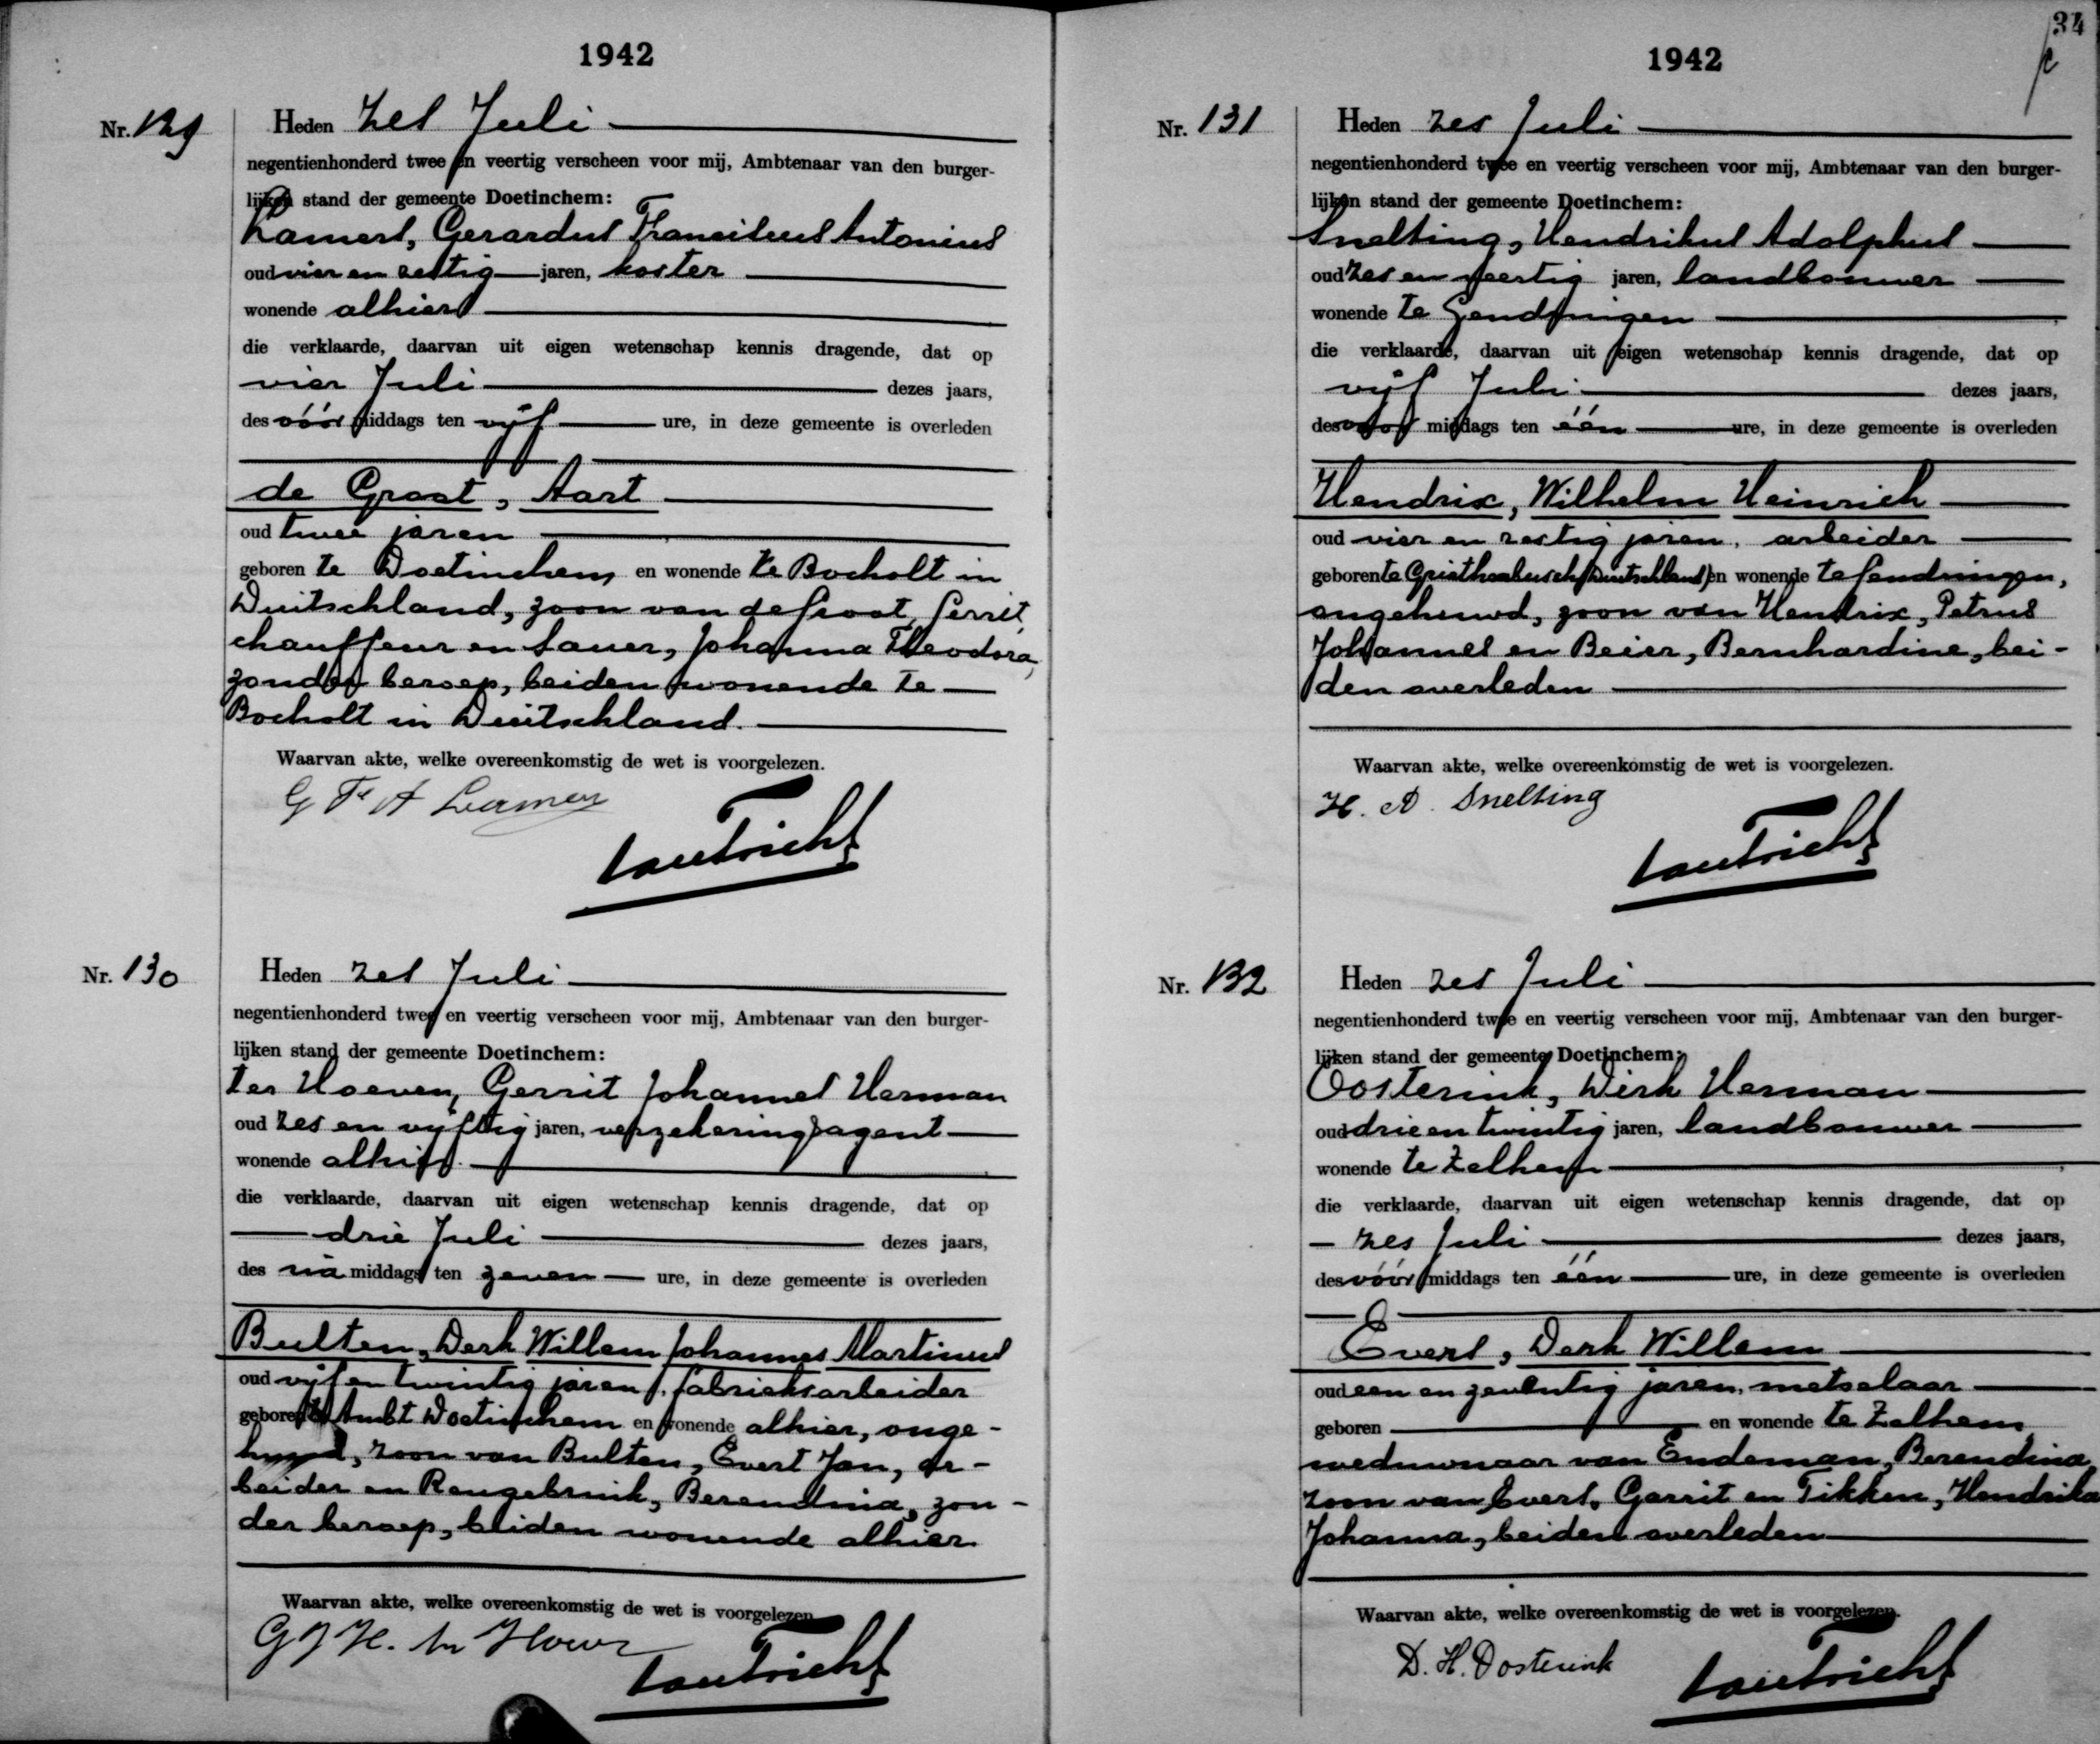 1942
Nr. 129
Heden zes Juli
negentienhonderd twee en veertig verscheen voor mij, Ambtenaar van den burger-
lijken stand der gemeente Doetinchem:
Lamers, Gerardus Franciscus Antonius
oud vier en zestig jaren, koster
wonende alhier
die verklaarde, daarvan uit eigen wetenschap kennis dragende, dat op
vier Juli dezes jaars,
des vóór middags ten vijf ure, in deze gemeente is overleden
de Groot, Aart
oud twee jaren
geboren te Doetinchem en wonende te Bocholt in
Duitschland, zoon van de Groot, Gerrit,
chauffeur en Sauer, Johanna Theodora,
zonder beroep, beiden wonende te
Bocholt in Duitschland.
Waarvan akte, welke overeenkomstig de wet is voorgelezen.
G F A Lamers
Nr. 130
Heden zes Juli
negentienhonderd twee en veertig verscheen voor mij, Ambtenaar van den burger-
lijken stand der gemeente Doetinchem:
ter Hoeven, Gerrit Johannes Herman
oud zes en vijftig jaren, verzekeringsagent
wonende alhier.
die verklaarde, daarvan uit eigen wetenschap kennis dragende, dat op
drie Juli dezes jaars,
des na middags ten zeven ure, in deze gemeente is overleden
Bulten, Derk Willem Johannes Martinus
oud vijf en twintig jaren, fabrieksarbeider
geboren te Ambt Doetinchem en wonende alhier, onge-
huwd, zoon van Bulten, Evert Jan, ar-
beider en Rengebrink, Berendina, zon-
der beroep, beiden wonende alhier
Waarvan akte, welke overeenkomstig de wet is voorgelezen.
G J H. ter Hoeven
34
1942
Nr. 131
Heden zes Juli
negentienhonderd twee en veertig verscheen voor mij, Ambtenaar van den burger-
lijken stand der gemeente Doetinchem:
Snelting, Hendrikus Adolphus
oud zes en veertig jaren, landbouwer
wonende te Gendringen
die verklaarde, daarvan uit eigen wetenschap kennis dragende, dat op
vijf Juli dezes jaars,
des voor middags ten één ure, in deze gemeente is overleden
Hendrix, Wilhelm Heinrich
oud vier en zestig jaren, arbeider
geboren te (Duitschland) en wonende te Gendringen,
ongehuwd, zoon van Hendrix, Petrus
Johannes en Beier, Bernhardine, bei-
den overleden
Waarvan akte, welke overeenkomstig de wet is voorgelezen.
H. A. Snelting
Nr. 132
Heden zes Juli
negentienhonderd twee en veertig verscheen voor mij, Ambtenaar van den burger-
lijken stand der gemeente Doetinchem:
Oosterink, Derk Herman
oud drie en twintig jaren, landbouwer
wonende te Zelhem
die verklaarde, daarvan uit eigen wetenschap kennis dragende, dat op
zes Juli dezes jaars,
des vóór middags ten één ure, in deze gemeente is overleden
Evers, Derk Willem
oud een en zeventig jaren, metselaar
geboren en wonende te Zelhem,
weduwnaar van Endeman, Berendina,
zoon van Evers, Gerrit en Tikken, Hendrika
Johanna, beiden overleden
Waarvan akte, welke overeenkomstig de wet is voorgelezen.
D. H. Oosterink